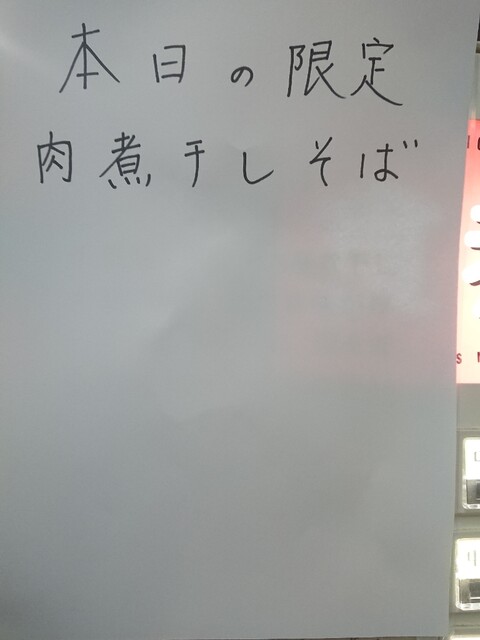 本日の限定
肉煮干しそば